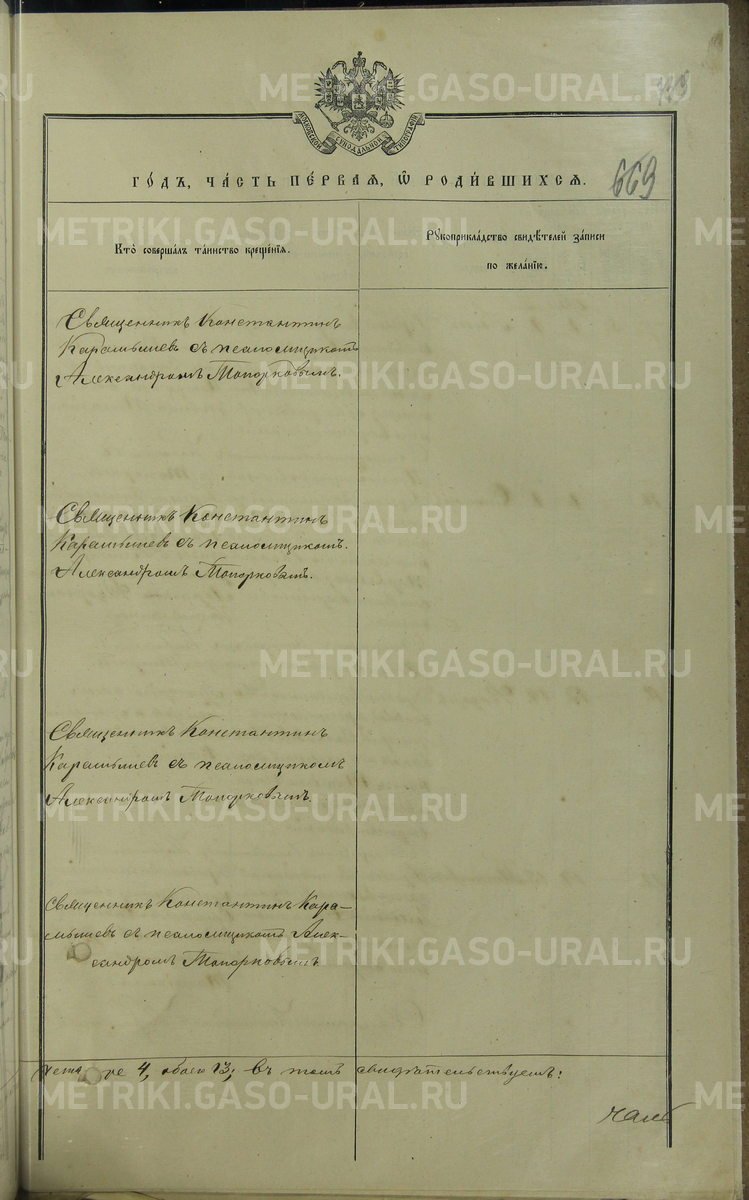 METRIKI.GASO-URAL.RU
МОСКОВСКОЙ СѴНОДАЛЬНОЙ ТИПОГРАФІИ
ГО́ДЪ, ЧА́СТЬ ПЕ́РВАѦ, Ѡ҆ РОДИ́ВШИХСѦ.
669
Кто̀ соверша́лъ та́инство креще́нїѧ.
Рꙋкоприкла́дство свидѣ́телей за́писи
по жела́нїю.
Священникъ Константинъ
Карамышевъ съ псаломщикомъ
Александромъ Топорковымъ.
Священникъ Константинъ
Карамышевъ съ псаломщикомъ.
Александромъ Топорковымъ.
Священникъ Константинъ
Карамышевъ съ псаломщикомъ
Александромъ Топорковымъ.
Священникъ Константинъ Кара-
мышевъ съ псаломщикомъ Алек-
сандромъ Топорковымъ
4, обоего 13; въ томъ свидѣтельствуемъ: